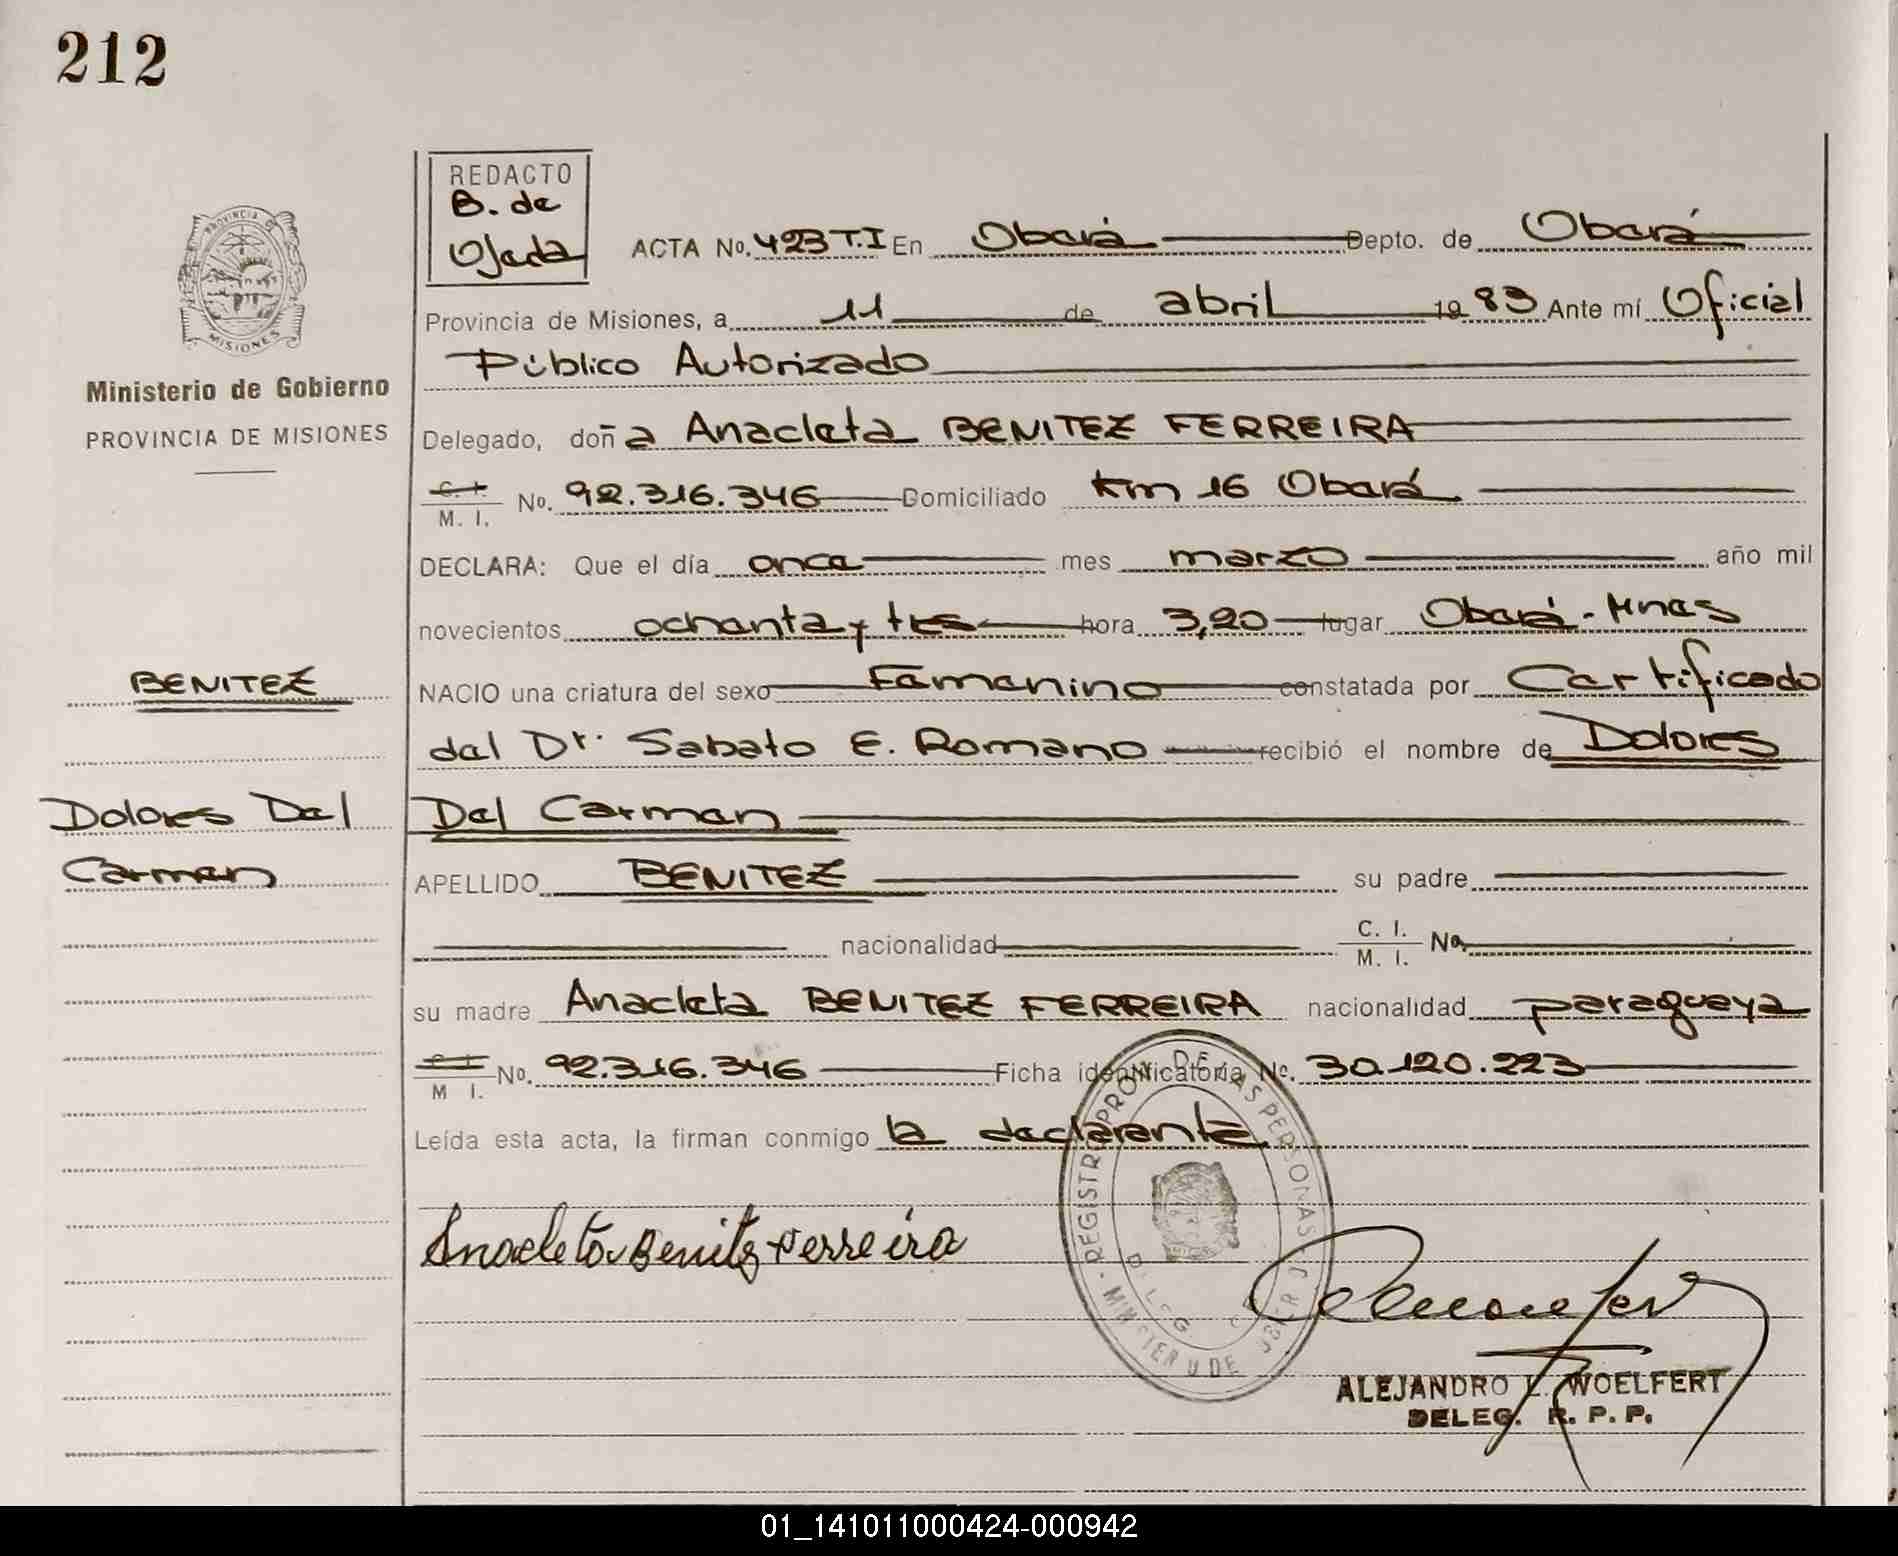 212
REDACTO
B. de
Ojeda
ACTA No. 423 T.I En Oberá Depto. de Oberá
Provincia de Misiones, a 11 de abril 1983 Ante mí Oficial
Público Autorizado
Ministerio de Gobierno
PROVINCIA DE MISIONES
Delegado, doña Anacleta BENITEZ FERREIRA
C. I.
M. I. No. 92.316.346 Domiciliado Km 16 Oberá.
DECLARA: Que el día once mes marzo año mil
novecientos ochenta y tres hora 3,20 lugar Oberá - Mnes
BENITEZ
NACIO una criatura del sexo Femenino constatada por Certificado
del Dr. Sabato E. Romano recibió el nombre de Dolores
Dolores Del
Carmen
Del Carmen
APELLIDO BENITEZ su padre
nacionalidad C. I.
M. I. No.
su madre Anacleta BENITEZ FERREIRA nacionalidad paraguaya
C. I.
M I. No. 92.316.346 Ficha identificatoria No. 30.120.223
Leída esta acta, la firman conmigo la declarante
Anacleta Benitez Ferreira
ALEJANDRO L. WOELFERT
DELEG. R. P. P.
PROVINCIA DE
MISIONES
01_141011000424-000942